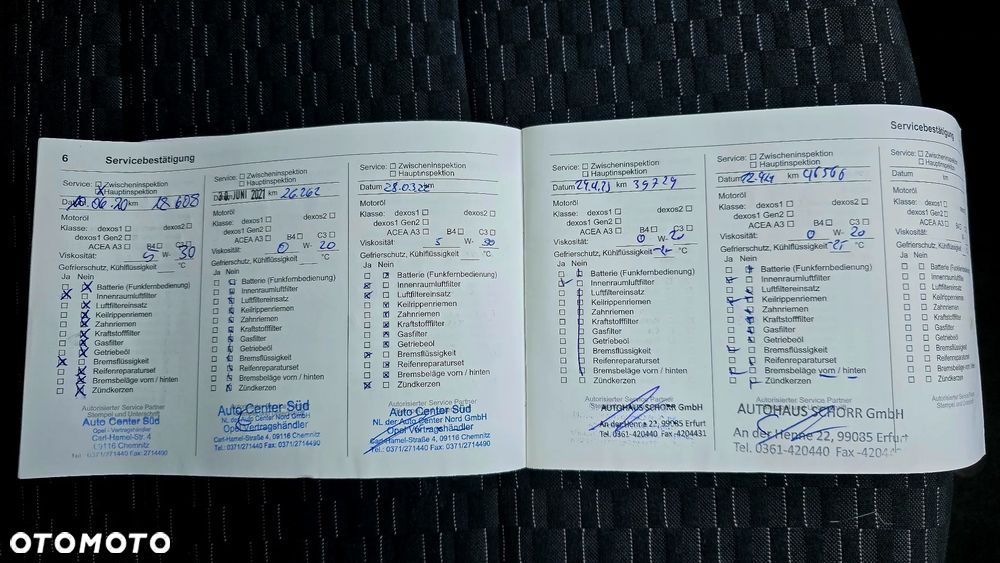 6 Servicebestätigung
Service: ☐ Zwischeninspektion
☒ Hauptinspektion
Datum 06.20 km 18 608
Motoröl
Klasse: dexos1 ☐ dexos2 ☐
dexos1 Gen2 ☐
ACEA A3 ☐ B4 ☐ C3 ☐
Viskosität: 5 W- 30
Gefrierschutz, Kühlflüssigkeit °C
Ja Nein
☐ ☒ Batterie (Funkfernbedienung)
☒ ☐ Innenraumluftfilter
☐ ☒ Luftfiltereinsatz
☐ ☒ Keilrippenriemen
☐ ☒ Zahnriemen
☐ ☒ Kraftstofffilter
☐ ☒ Gasfilter
☐ ☒ Getriebeöl
☒ ☐ Bremsflüssigkeit
☐ ☒ Reifenreparaturset
☐ ☒ Bremsbeläge vorn / hinten
☐ ☒ Zündkerzen
Autorisierter Service Partner
Stempel und Unterschrift
Auto Center Süd
Opel - Vertragshändler
Carl-Hamel-Str. 4
09116 Chemnitz
Tel.: 0371/271440 Fax: 2714490
Service: ☐ Zwischeninspektion
☐ Hauptinspektion
JUNI 2021 km 26.262
Motoröl
Klasse: dexos1 ☐ dexos2 ☐
dexos1 Gen2 ☐
ACEA A3 ☐ B4 ☐ C3 ☐
Viskosität: 0 W- 20
Gefrierschutz, Kühlflüssigkeit °C
Ja Nein
Batterie (Funkfernbedienung)
Innenraumluftfilter
Luftfiltereinsatz
Keilrippenriemen
Zahnriemen
Kraftstofffilter
Gasfilter
Getriebeöl
Bremsflüssigkeit
Reifenreparaturset
Bremsbeläge vorn / hinten
Zündkerzen
Autorisierter Service Partner
Auto Center Süd
NL der Auto Center Nord GmbH
Opel Vertragshändler
Carl-Hamel-Straße 4, 09116 Chemnitz
Tel.: 0371/271440 Fax: 2714490
Service: ☐ Zwischeninspektion
☐ Hauptinspektion
Datum 28.03.22 km
Motoröl
Klasse: dexos1 ☐ dexos2 ☐
dexos1 Gen2 ☐
ACEA A3 ☐ B4 ☐ C3 ☐
Viskosität: 5 W- 30
Gefrierschutz, Kühlflüssigkeit °C
Ja Nein
☐ ☒ Batterie (Funkfernbedienung)
☒ ☐ Innenraumluftfilter
☒ ☐ Luftfiltereinsatz
☐ ☒ Keilrippenriemen
☐ ☒ Zahnriemen
☐ ☒ Kraftstofffilter
☐ ☒ Gasfilter
☐ ☒ Getriebeöl
☒ ☐ Bremsflüssigkeit
☐ ☒ Reifenreparaturset
☐ ☒ Bremsbeläge vorn / hinten
☒ ☐ Zündkerzen
Autorisierter Service Partner
Auto Center Süd
NL der Auto Center Nord GmbH
Opel Vertragshändler
Carl-Hamel-Straße 4, 09116 Chemnitz
Tel.: 0371/271440 Fax: 2714490
Servicebestätigung
Service: ☐ Zwischeninspektion
☐ Hauptinspektion
Datum km 39729
Motoröl
Klasse: dexos1 ☐ dexos2 ☐
dexos1 Gen2 ☐
ACEA A3 ☐ B4 ☐ C3 ☐
Viskosität: 0 W- 20
Gefrierschutz, Kühlflüssigkeit -25 °C
Ja Nein
Batterie (Funkfernbedienung)
Innenraumluftfilter
Luftfiltereinsatz
Keilrippenriemen
Zahnriemen
Kraftstofffilter
Gasfilter
Getriebeöl
Bremsflüssigkeit
Reifenreparaturset
Bremsbeläge vorn / hinten
Zündkerzen
Autorisierter Service Partner
AUTOHAUS SCHORR GmbH
An der Henne 22, 99085 Erfurt
Tel. 0361-420440 Fax -4204431
Service: ☐ Zwischeninspektion
☐ Hauptinspektion
Datum km 46566
Motoröl
Klasse: dexos1 ☐ dexos2 ☐
dexos1 Gen2 ☐
ACEA A3 ☐ B4 ☐ C3 ☐
Viskosität: 0 W- 20
Gefrierschutz, Kühlflüssigkeit -25 °C
Ja Nein
Batterie (Funkfernbedienung)
Innenraumluftfilter
Luftfiltereinsatz
Keilrippenriemen
Zahnriemen
Kraftstofffilter
Gasfilter
Getriebeöl
Bremsflüssigkeit
Reifenreparaturset
Bremsbeläge vorn / hinten
Zündkerzen
Autorisierter Service Partner
AUTOHAUS SCHORR GmbH
An der Henne 22, 99085 Erfurt
Tel. 0361-420440 Fax -4204
Service: ☐ Zwischeninspektion
☐ Hauptinspektion
Datum
Motoröl
Klasse: dexos1 ☐
dexos1 Gen2 ☐
ACEA A3 ☐
Viskosität:
Gefrierschutz, Kühlflüssi
Ja Nein
☐ ☐ Batterie (Funkfern
☐ ☐ Innenraumluftfilter
☐ ☐ Luftfiltereinsatz
☐ ☐ Keilrippenriemen
☐ ☐ Zahnriemen
☐ ☐ Kraftstofffilter
☐ ☐ Gasfilter
☐ ☐ Getriebeöl
☐ ☐ Bremsflüssigkeit
☐ ☐ Reifenreparatur
☐ ☐ Bremsbeläge vor
☐ ☐ Zündkerzen
Autorisierter Service
Stempel und Unters
OTOMOTO